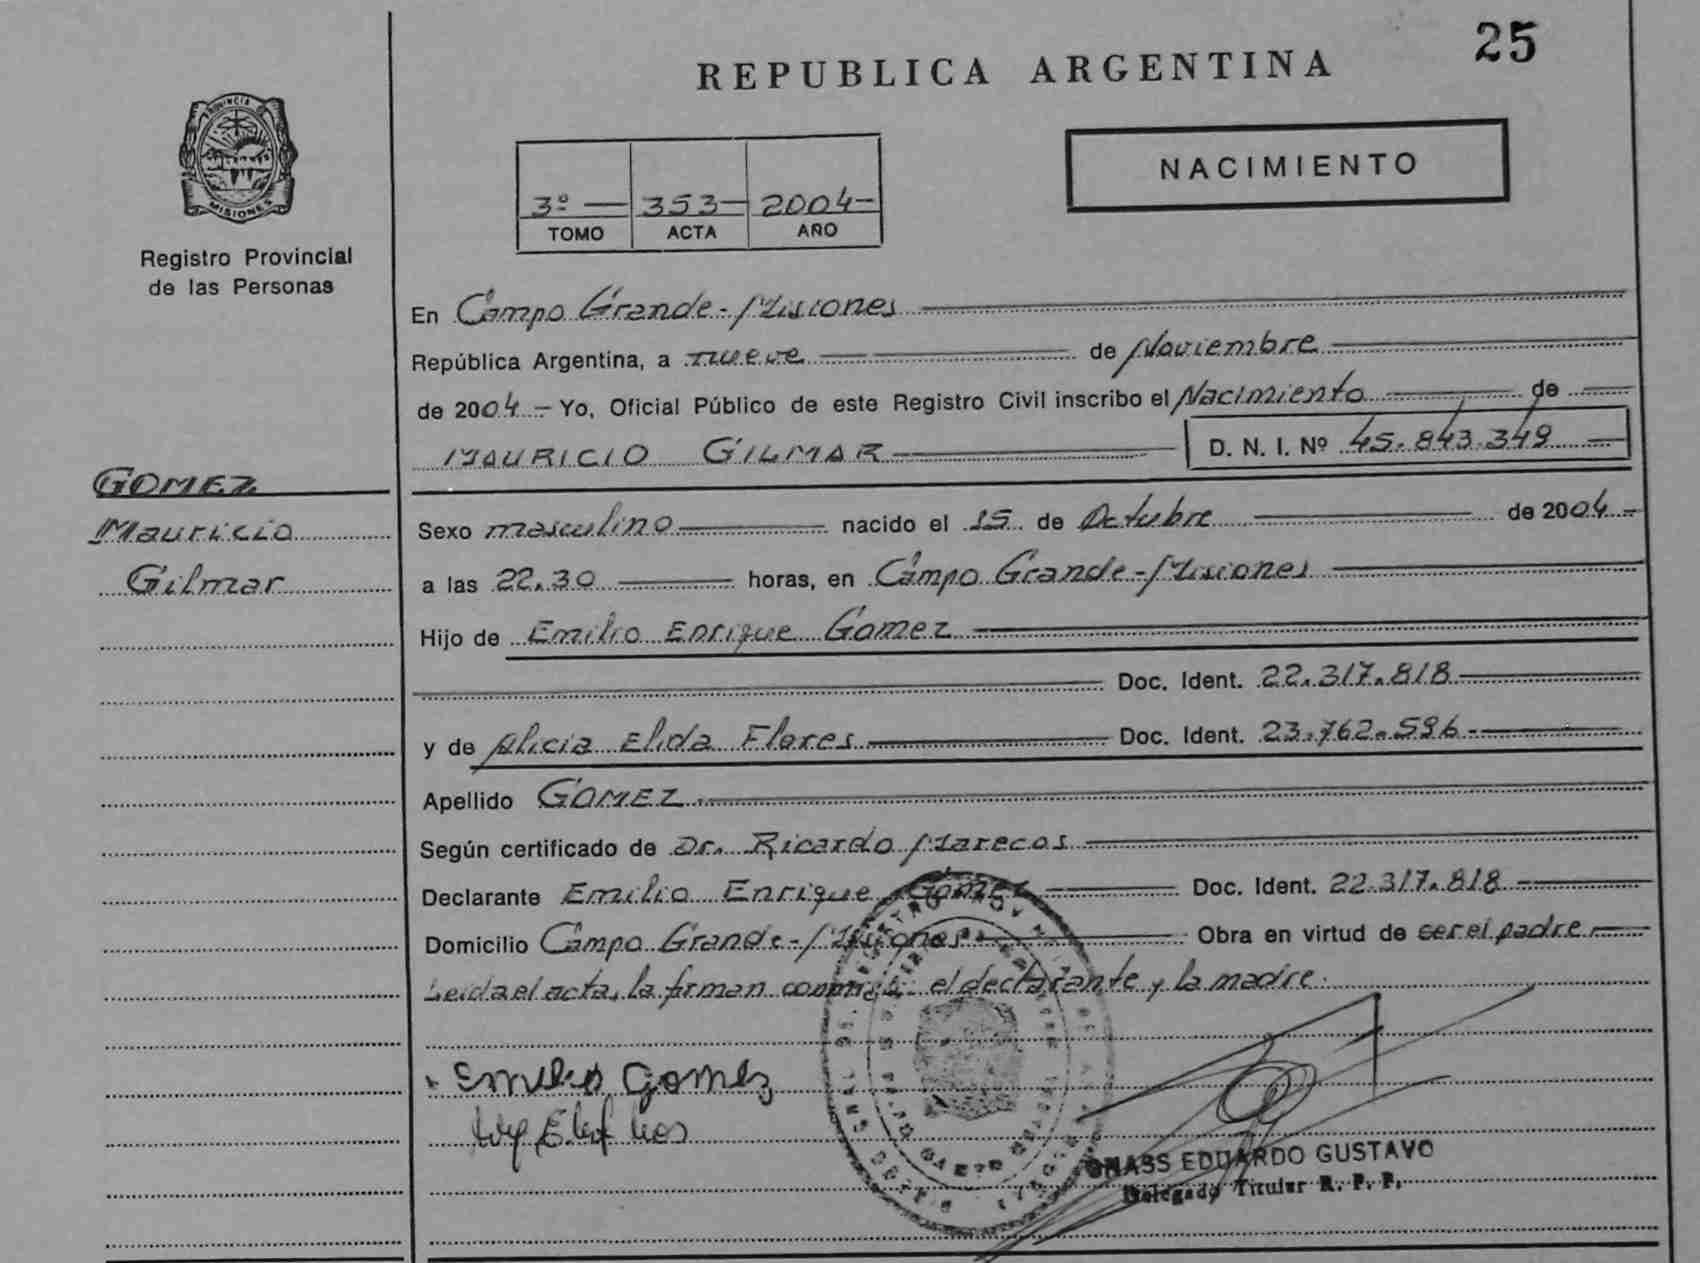 25
REPUBLICA ARGENTINA
PROVINCIA DE
MISIONES
Registro Provincial
de las Personas
3º 353 2004
TOMO ACTA AÑO
NACIMIENTO
En Campo Grande - Misiones
República Argentina, a nueve de Noviembre
de 2004 - Yo, Oficial Público de este Registro Civil inscribo el Nacimiento de
MAURICIO GILMAR D. N. I. Nº 45.843.349
GOMEZ
Mauricio
Gilmar
Sexo masculino nacido el 15 de Octubre de 2004
a las 22.30 horas, en Campo Grande - Misiones
Hijo de Emilio Enrique Gomez
Doc. Ident. 22.317.818
y de Alicia Elida Flores Doc. Ident. 23.762.596
Apellido GOMEZ
Según certificado de Dr. Ricardo Marecos
Declarante Emilio Enrique Gomez Doc. Ident. 22.317.818
Domicilio Campo Grande - Misiones Obra en virtud de ser el padre
Leida el acta, la firman conmigo: el declarante y la madre.
Emilio Gomez
EDUARDO GUSTAVO
Delegado Titular R. P. P.